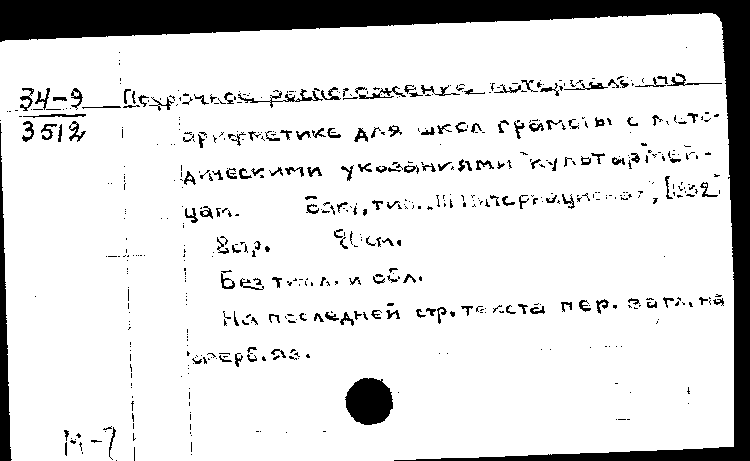 34-9 Поурочное расположение материала по
3512 арифметике для школ грамоты с мето-
дическими указаниями "культармей-
цам. Баку, тип. "III Интернационал", [1932]
8 стр. 20 см.
Без тит. л. и обл.
На последней стр. текста пер. загл. на
азерб. яз.
М-2